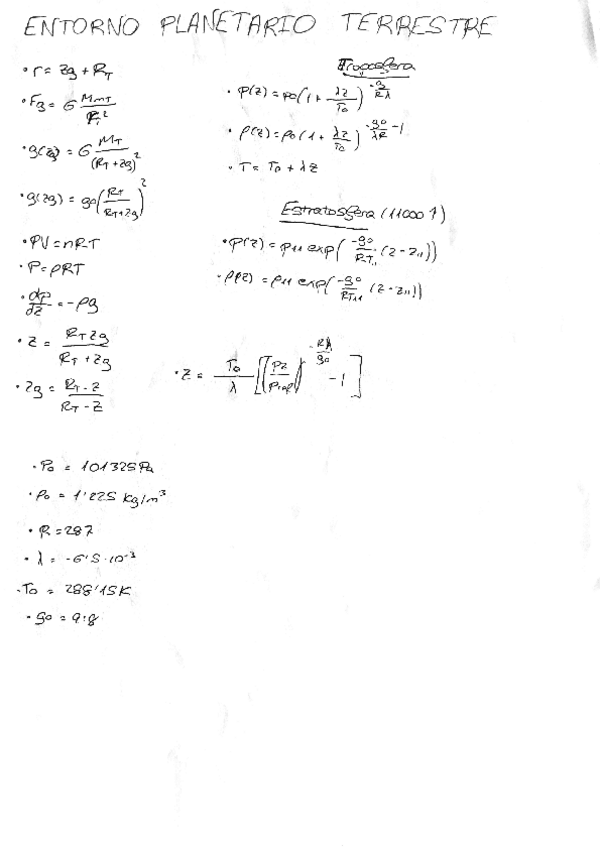 ENTORNO PLANETARIO TERRESTRE
• r = zg + R_T
• Fg = G Mm_T / r²
• g(zg) = G M_T / (R_T + zg)²
• g(zg) = g0 (R_T / (R_T + zg))²
• PV = nRT
• P = ρRT
• dp/dz = -ρg
• z = R_T zg / (R_T + zg)
• zg = R_T · z / (R_T - z)
Troposfera
• p(z) = p0 (1 + λz/T0)^(-g/Rλ)
• ρ(z) = ρ0 (1 + λz/T0)^(-g0/λR - 1)
• T = T0 + λz
Estratosfera (11000 ↑)
• p(z) = p11 exp(-g0/RT11 · (z - z11))
• ρ(z) = ρ11 exp(-g0/RT11 (z - z11))
• z = T0/λ [(pz/pref)^(-Rλ/g0) - 1]
• P0 = 101325 Pa
• ρ0 = 1'225 kg/m³
• R = 287
• λ = -6'5 · 10⁻³
• T0 = 288'15 K
• g0 = 9'8